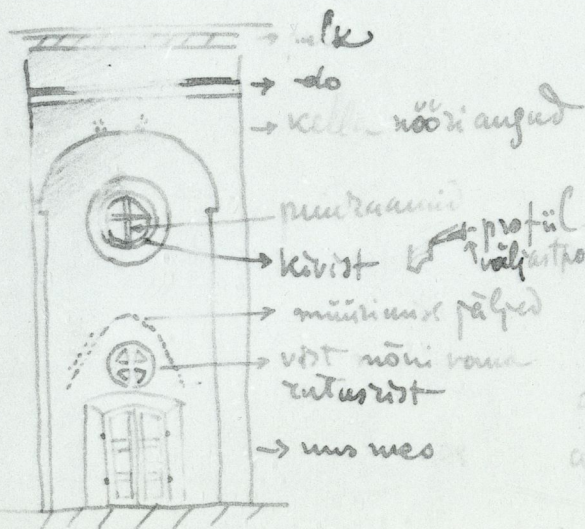 do
kella nööri augud
puuraamid
kivist
profiil
väljastpo
müürimise jäljed
vist mõni vana
ratasrist